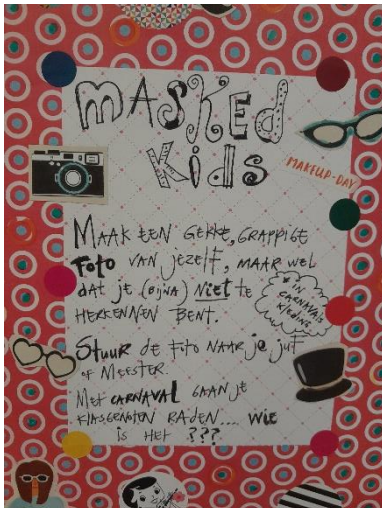 MASKED
Kids
MAKEUP-DAY
MAAK EEN GEKKE, GRAPPIGE
FOTO VAN jEZELF, MAAR WEL
dAT jE (BijNA) NiET TE
HERKENNEN BENT.
* IN
CARNAVALS
KLEDING
STUUR dE FOTO NAAR jE juf
OF MEESTER.
MET CARNAVAL GAAN jE
KLASGENOTEN RADEN... WIE
IS HET ???